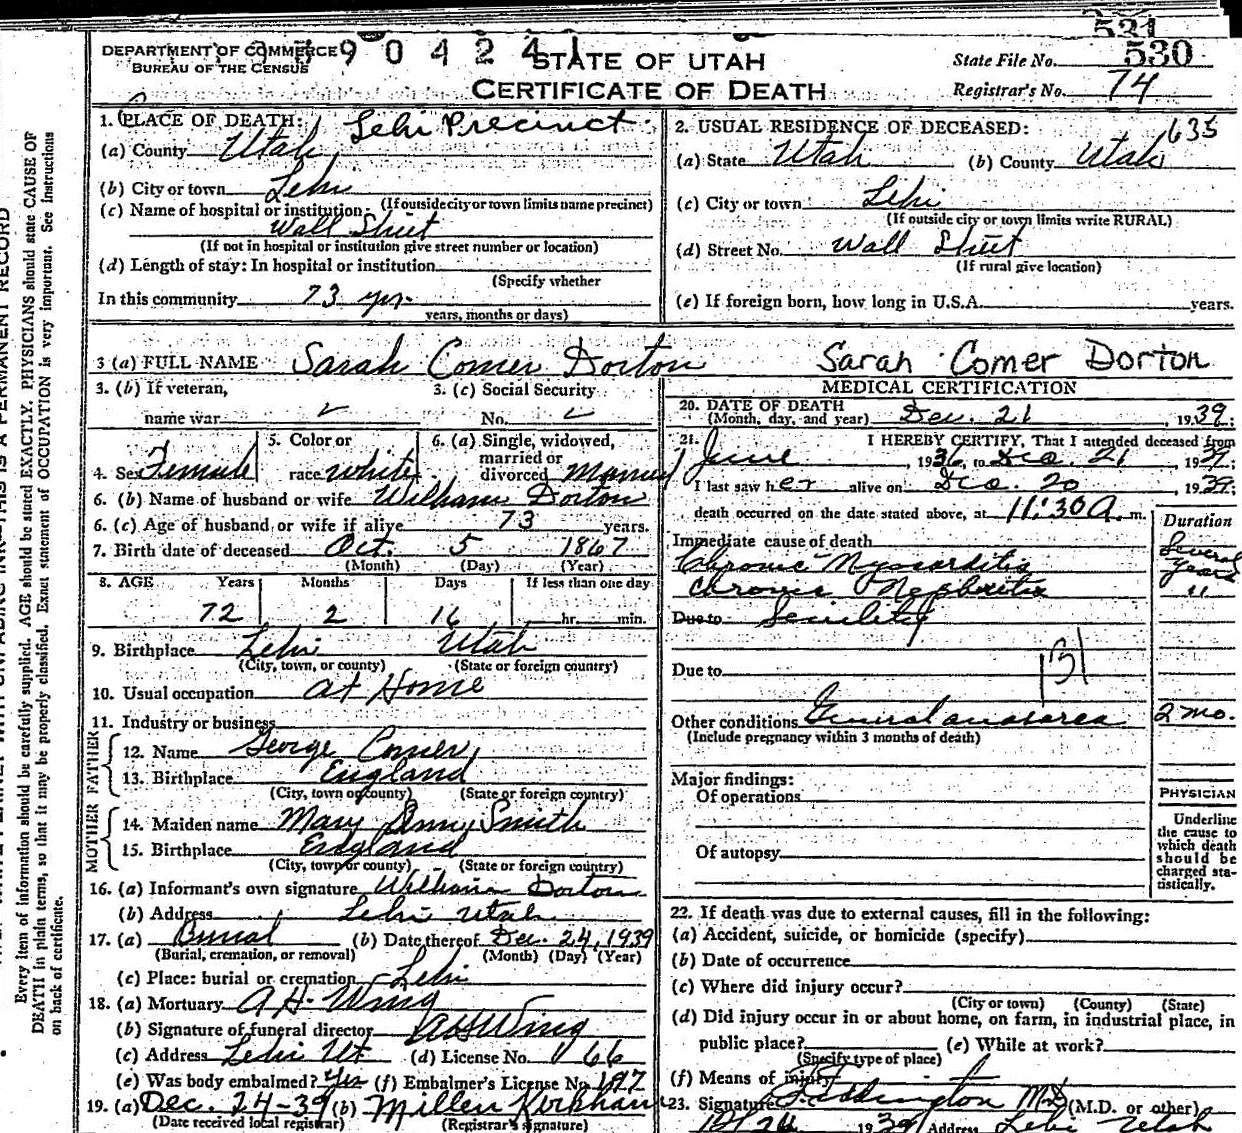 531
DEPARTMENT OF COMMERCE
BUREAU OF THE CENSUS
STATE OF UTAH
CERTIFICATE OF DEATH
State File No. 530
Registrar's No. 74
1. PLACE OF DEATH: Lehi Precinct
(a) County Utah
(b) City or town Lehi
(If outside city or town limits name precinct)
(c) Name of hospital or institution:
Wall Street
(If not in hospital or institution give street number or location)
(d) Length of stay: In hospital or institution
(Specify whether
In this community 73 yrs.
years, months or days)
2. USUAL RESIDENCE OF DECEASED: 635
(a) State Utah (b) County Utah
(c) City or town Lehi
(If outside city or town limits write RURAL)
(d) Street No. Wall Street
(If rural give location)
(e) If foreign born, how long in U.S.A. years.
3 (a) FULL NAME Sarah Comer Dorton Sarah Comer Dorton
3. (b) If veteran,
name war
3. (c) Social Security
No.
4. Sex Female
5. Color or
race white
6. (a) Single, widowed,
married or
divorced Married
6. (b) Name of husband or wife William Dorton
6. (c) Age of husband or wife if alive 73 years.
7. Birth date of deceased Oct. 5 1867
(Month) (Day) (Year)
8. AGE Years Months Days If less than one day
72 2 16 hr. min.
9. Birthplace Lehi Utah
(City, town, or county) (State or foreign country)
10. Usual occupation at Home
11. Industry or business
FATHER
12. Name George Comer
13. Birthplace England
(City, town or county) (State or foreign country)
MOTHER
14. Maiden name Mary Ann Smith
15. Birthplace England
(City, town or county) (State or foreign country)
16. (a) Informant's own signature William Dorton
(b) Address Lehi Utah
17. (a) Burial (b) Date thereof Dec. 24, 1939
(Burial, cremation, or removal) (Month) (Day) (Year)
(c) Place: burial or cremation Lehi
18. (a) Mortuary A H Wing
(b) Signature of funeral director A H Wing
(c) Address Lehi Ut (d) License No. 66
(e) Was body embalmed? Yes (f) Embalmer's License No 197
19. (a) Dec. 24-39 (b) Millen Kirkham
(Date received local registrar) (Registrar's signature)
MEDICAL CERTIFICATION
20. DATE OF DEATH
(Month, day, and year) Dec. 21, 1939;
21. I HEREBY CERTIFY, That I attended deceased from
June, 1936, to Dec. 21, 1939
I last saw her alive on Dec. 20, 1939;
death occurred on the date stated above, at 11:30 A. m.
Duration
Immediate cause of death
Chronic Myocarditis Several years
Chronic Nephritis "
Due to Senility
Due to
131
Other conditions General anasarca 2 mo.
(Include pregnancy within 3 months of death)
Major findings:
Of operations
Of autopsy
PHYSICIAN
Underline
the cause to
which death
should be
charged sta-
tistically.
22. If death was due to external causes, fill in the following:
(a) Accident, suicide, or homicide (specify)
(b) Date of occurrence
(c) Where did injury occur?
(City or town) (County) (State)
(d) Did injury occur in or about home, on farm, in industrial place, in
public place? (e) While at work?
(Specify type of place)
(f) Means of injury
23. Signature Eddington MD (M.D. or other)
1939 Address Lehi Utah
Every item of information should be carefully supplied. AGE should be stated EXACTLY. PHYSICIANS should state CAUSE OF
DEATH in plain terms, so that it may be properly classified. Exact statement of OCCUPATION is very important. See Instructions
on back of certificate.